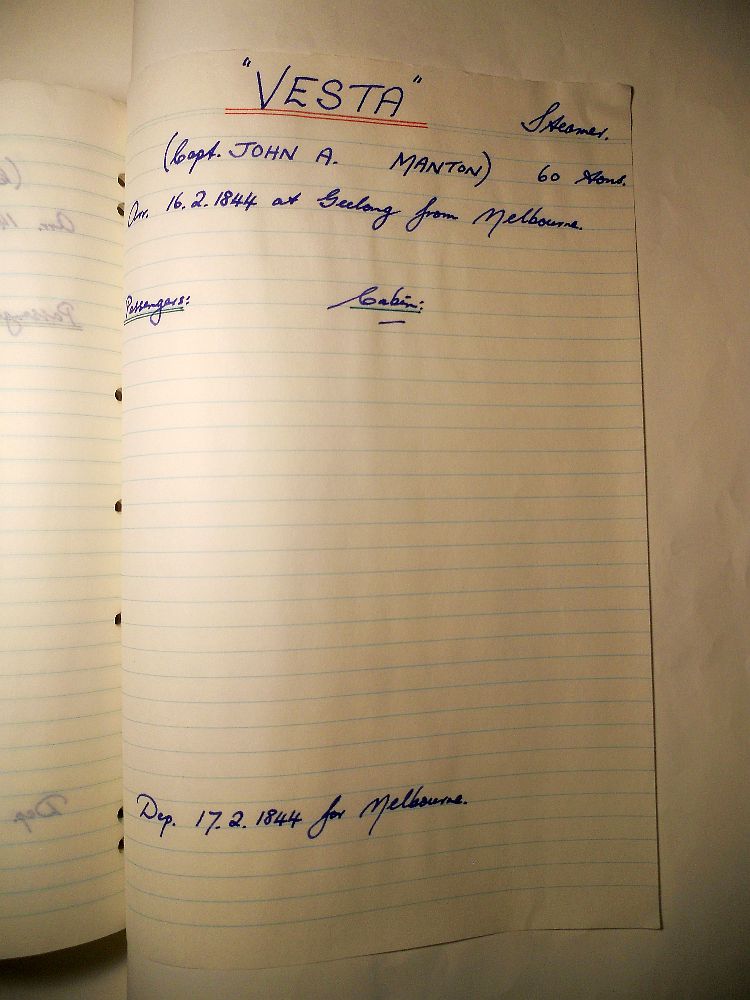 "VESTA"
Steamer.
(Capt. JOHN A. MANTON) 60 tons.
Arr. 16.2.1844 at Geelong from Melbourne.
Passengers: Cabin:
—
Dep. 17.2.1844 for Melbourne.